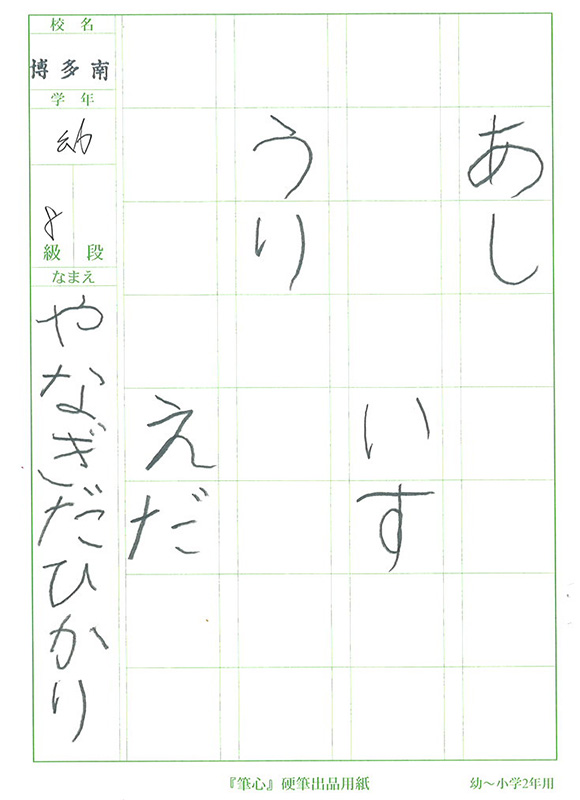 あし
いす
うり
えだ
校名
博多南
学年
幼
8
級段
なまえ
やなぎだひかり
『筆心』硬筆出品用紙
幼～小学2年用